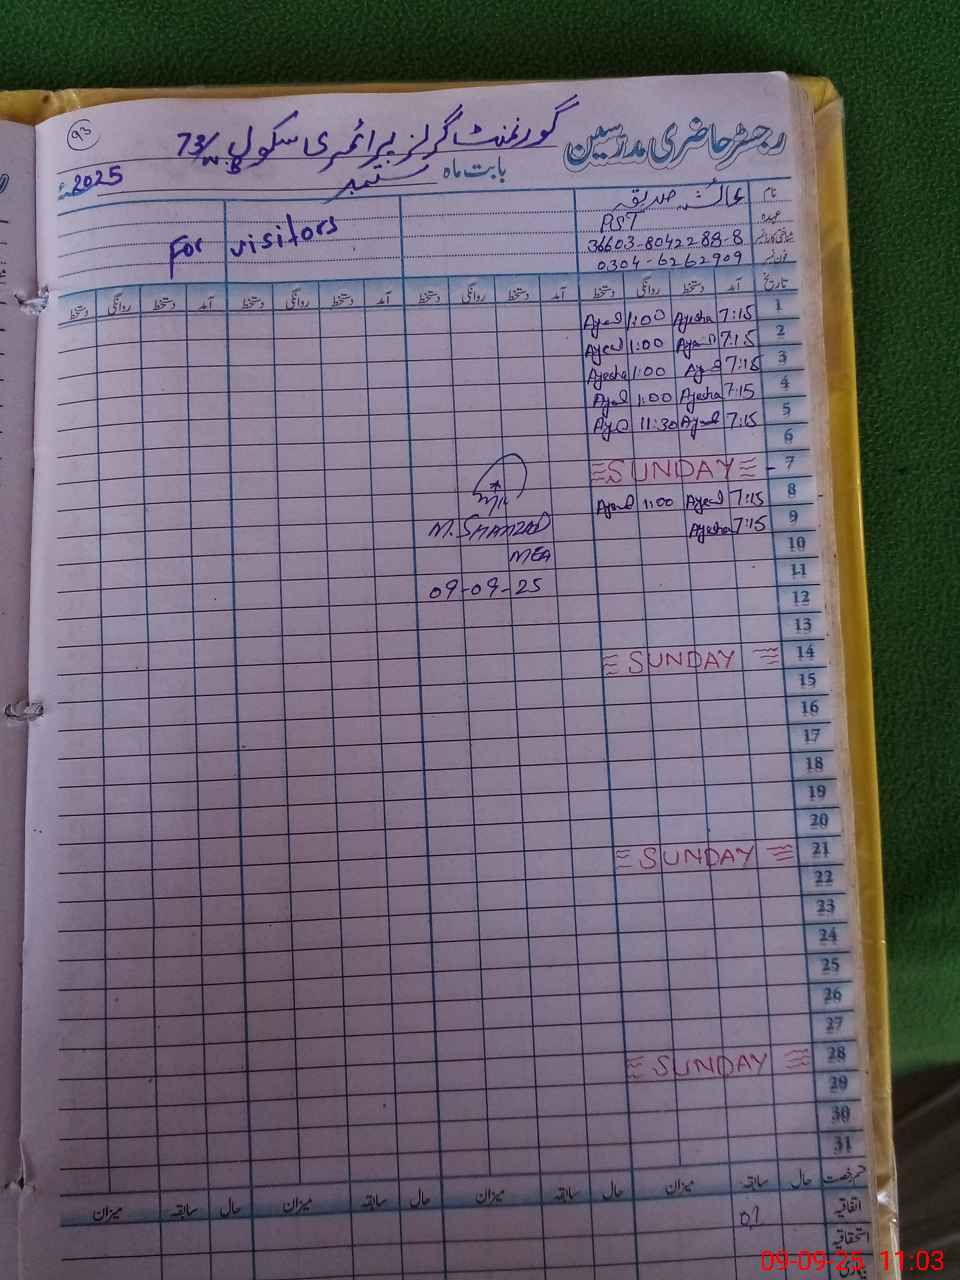 93
رجسٹر حاضری مدرسین گورنمنٹ گرلز پرائمری سکول 73/
بابت ماہ ستمبر 2025ء
نام عائشہ صدیقہ
عہدہ PST
شناختی کارڈ نمبر 36603-8042288-8
فون نمبر 0304-6262909
For visitors
تاریخ آمد دستخط روانگی دستخط آمد دستخط روانگی دستخط آمد دستخط روانگی دستخط
1 7:15 Ayesha 1:00
2 7:15 1:00
3 7:15 1:00 Ayesha
4 7:15 Ayesha 1:00
5 7:15 11:30
6
7 SUNDAY
8 7:15 1:00
9 7:15 Ayesha
M. SHAHZAD
10
MEA
11
09-09-25
12
13
14 SUNDAY
15
16
17
18
19
20
21 SUNDAY
22
23
24
25
26
27
28 SUNDAY
29
30
31
قسم رخصت حال سابقہ میزان حال سابقہ میزان حال سابقہ میزان حال سابقہ میزان
اتفاقیہ 01
استحقاقیہ
09-09-25 11:03